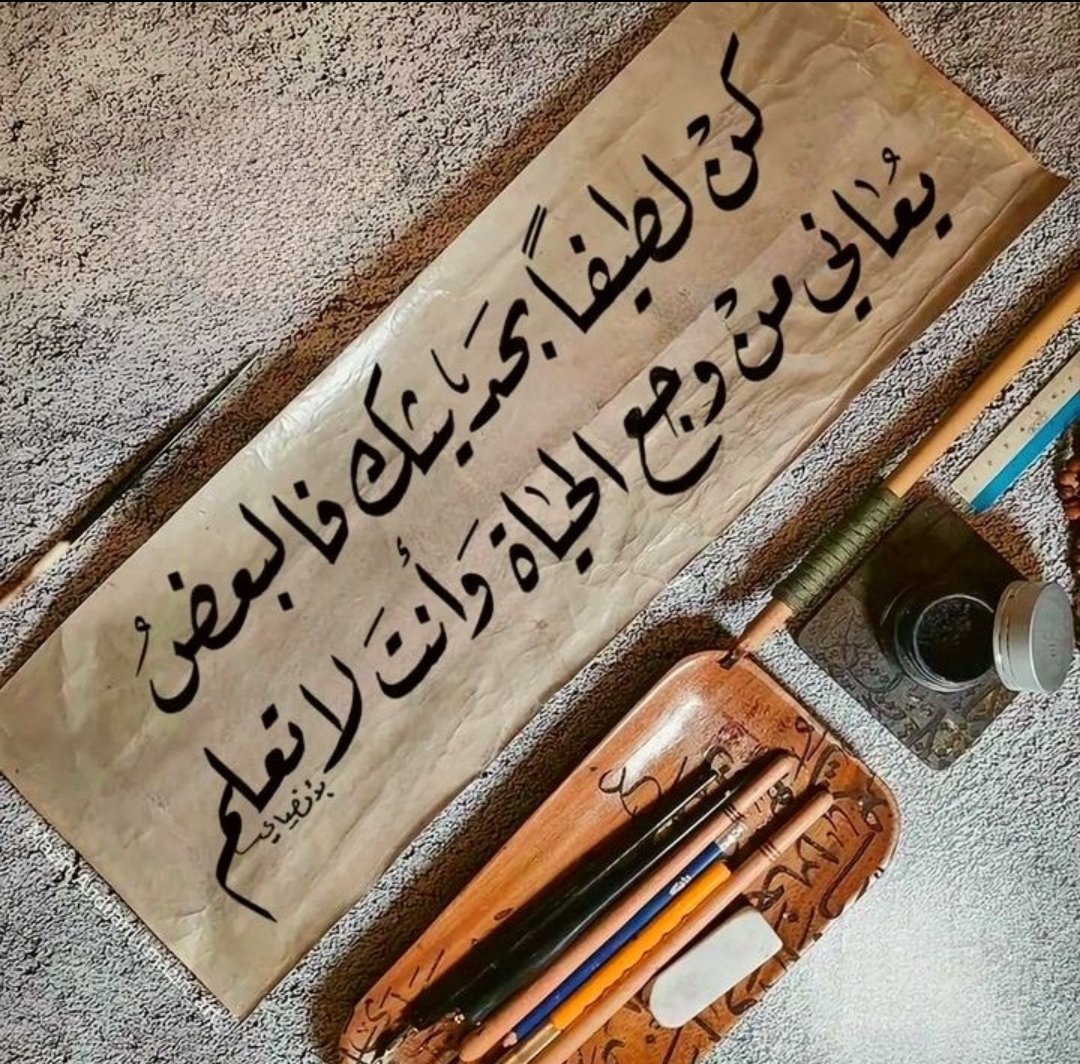 كنْ لطيفاً بحَديثك فالبعضُ
يُعاني منْ وجع الحياة وَأنتَ لا تعلم